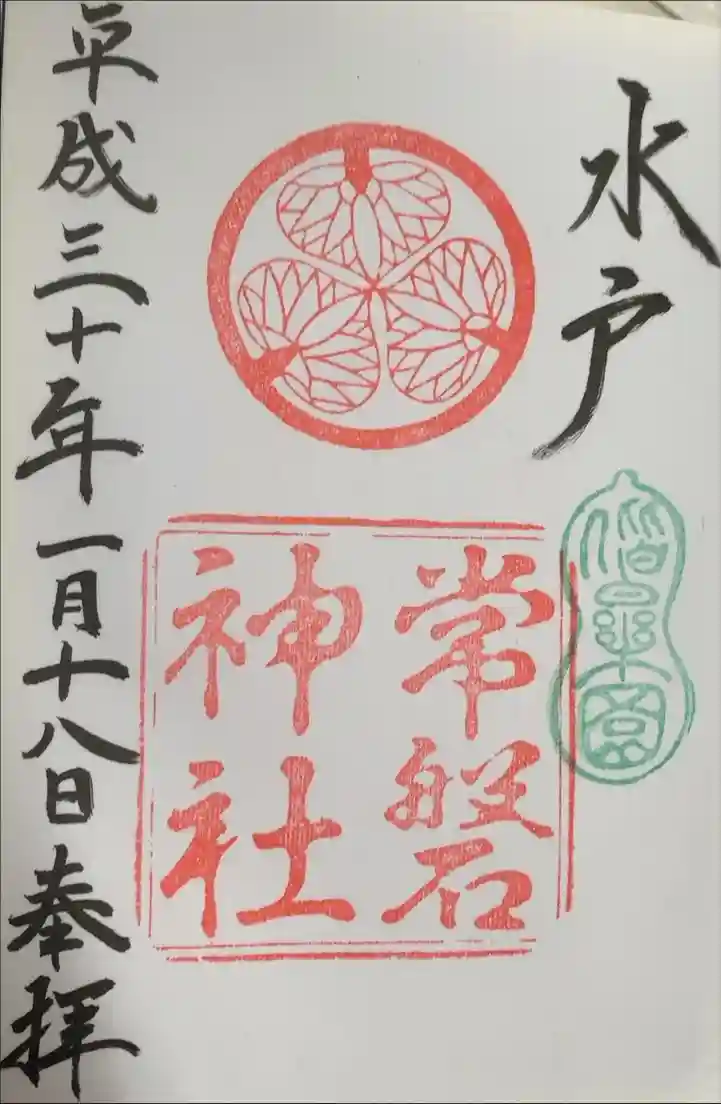 水戸
偕楽園
常磐
神社
平成三十年一月十八日奉拝